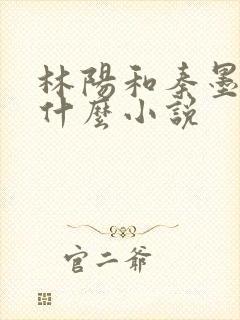 林陽和秦墨
什麼小說
官二爺